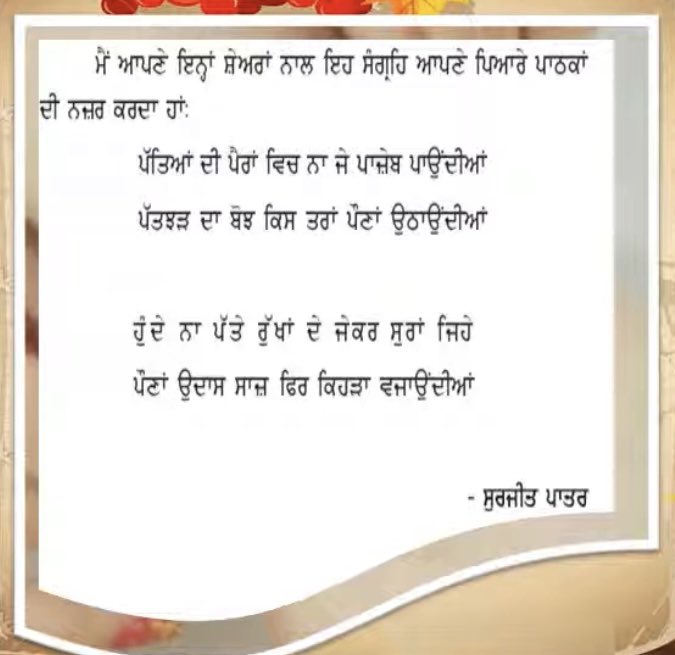 ਮੈਂ ਆਪਣੇ ਇਨ੍ਹਾਂ ਸ਼ੇਅਰਾਂ ਨਾਲ ਇਹ ਸੰਗ੍ਰਹਿ ਆਪਣੇ ਪਿਆਰੇ ਪਾਠਕਾਂ
ਦੀ ਨਜ਼ਰ ਕਰਦਾ ਹਾਂ:
ਪੱਤਿਆਂ ਦੀ ਪੈਰਾਂ ਵਿਚ ਨਾ ਜੇ ਪਾਜ਼ੇਬ ਪਾਉਂਦੀਆਂ
ਪੱਤਝੜ ਦਾ ਬੋਝ ਕਿਸ ਤਰਾਂ ਪੌਣਾਂ ਉਠਾਉਂਦੀਆਂ
ਹੁੰਦੇ ਨਾ ਪੱਤੇ ਰੁੱਖਾਂ ਦੇ ਜੇਕਰ ਸੁਰਾਂ ਜਿਹੇ
ਪੌਣਾਂ ਉਦਾਸ ਸਾਜ਼ ਫਿਰ ਕਿਹੜਾ ਵਜਾਉਂਦੀਆਂ
- ਸੁਰਜੀਤ ਪਾਤਰ